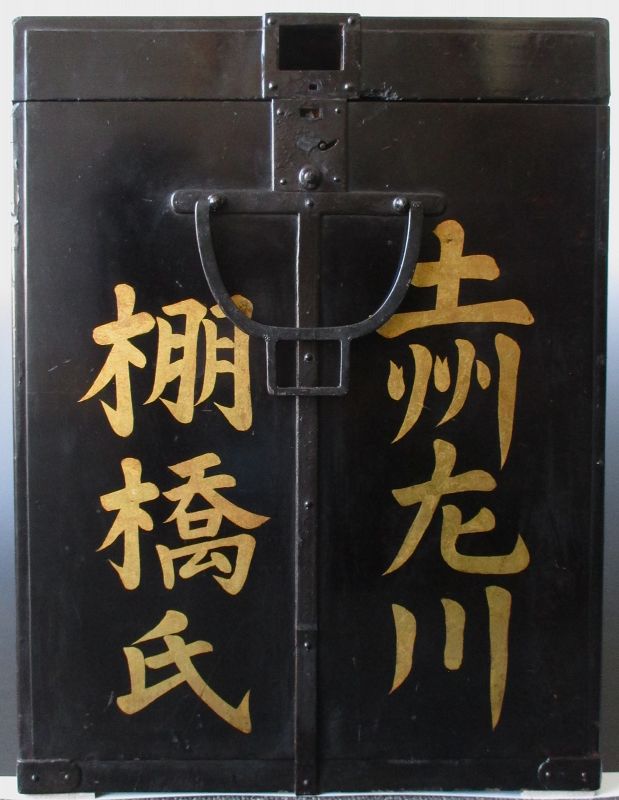 土州左川
棚橋氏